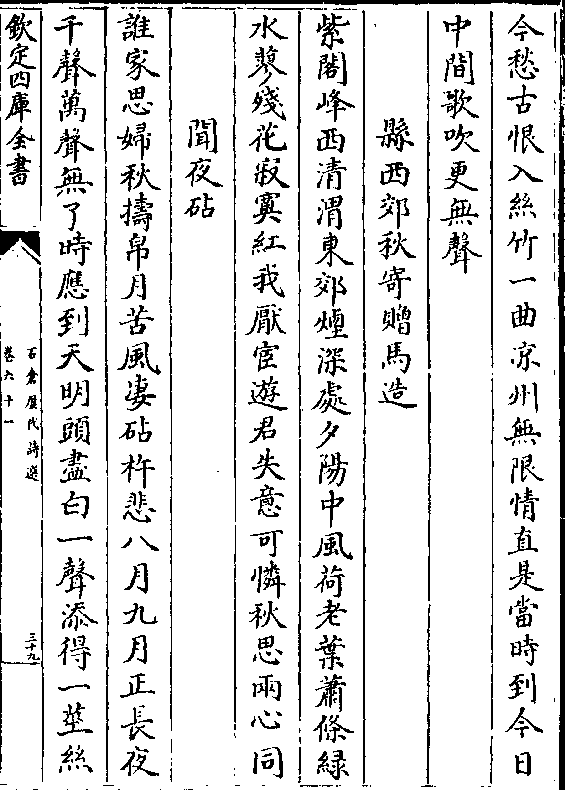 今愁古恨入絲竹一曲凉州無限情直是當時到今日
中間歌吹更無聲
縣西郊秋寄贈馬造
紫閣峰西清渭東郊煙深處夕陽中風荷老葉蕭條緑
水蓼殘花寂寞紅我厭宦遊君失意可憐秋思兩心同
聞夜砧
誰家思婦秋擣帛月苦風凄砧杵悲八月九月正長夜
千聲萬聲無了時應到天明頭盡白一聲添得一莖絲
欽定四庫全書
石倉歷代詩選
卷六十一
三十九